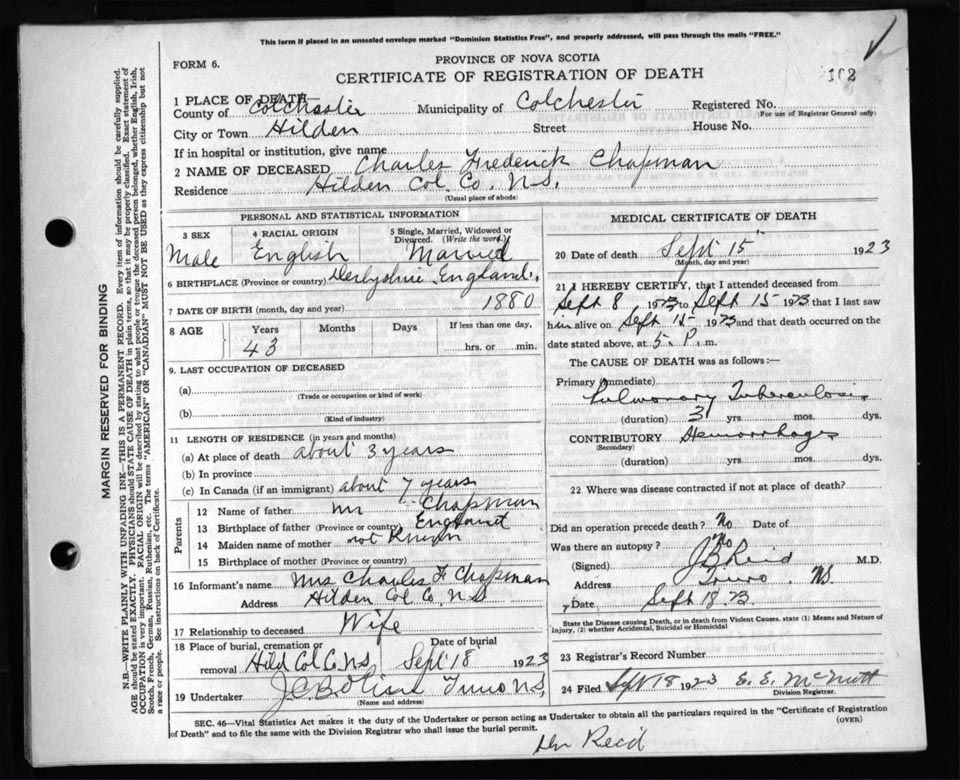 This form if placed in an unsealed envelope marked "Dominion Statistics Free", and properly addressed, will pass through the mails "FREE."
FORM 6.
PROVINCE OF NOVA SCOTIA
CERTIFICATE OF REGISTRATION OF DEATH
162
1 PLACE OF DEATH—
County of Colchester Municipality of Colchester Registered No.
(For use of Registrar General only)
City or Town Hilden Street House No.
If in hospital or institution, give name
2 NAME OF DECEASED Charles Frederick Chapman
Residence Hilden Col. Co. N.S.
(Usual place of abode)
PERSONAL AND STATISTICAL INFORMATION
3 SEX 4 RACIAL ORIGIN 5 Single, Married, Widowed or Divorced. (Write the word)
Male English Married
6 BIRTHPLACE (Province or country) Derbyshire England.
7 DATE OF BIRTH (month, day and year) 1880
8 AGE Years Months Days If less than one day,
43 hrs. or min.
9. LAST OCCUPATION OF DECEASED
(a)
(Trade or occupation or kind of work)
(b)
(Kind of industry)
11 LENGTH OF RESIDENCE (in years and months)
(a) At place of death about 3 years
(b) In province
(c) In Canada (if an immigrant) about 7 years
Parents
12 Name of father Mr Chapman
13 Birthplace of father (Province or country) England
14 Maiden name of mother not Known
15 Birthplace of mother (Province or country)
16 Informant's name Mrs Charles F Chapman
Address Hilden Col Co, N.S
17 Relationship to deceased Wife
18 Place of burial, cremation or removal Hild Col Co. N.S Date of burial Sept 18 1923
19 Undertaker Truro N.S,
(Name and address)
MEDICAL CERTIFICATE OF DEATH
20 Date of death Sept 15 1923
(Month, day and year)
21 I HEREBY CERTIFY, that I attended deceased from
Sept 8 1923 to Sept 15 1923 that I last saw
him alive on Sept 15 1923 and that death occurred on the
date stated above, at 5. P. m.
The CAUSE OF DEATH was as follows:—
Primary (immediate)
Pulmonary Tuberculosis
(duration) 3 yrs. mos. dys.
CONTRIBUTORY Hemorrhages
(Secondary)
(duration) yrs. mos. dys.
22 Where was disease contracted if not at place of death?
Did an operation precede death? No Date of
Was there an autopsy? No
(Signed) J B Reid M.D.
Address Truro. N.S.
Date Sept 18 23.
State the Disease causing Death, or in death from Violent Causes, state (1) Means and Nature of
Injury, (2) whether Accidental, Suicidal or Homicidal
23 Registrar's Record Number
24 Filed Sept 18 1923 E. E. McNutt
Division Registrar.
SEC. 46—Vital Statistics Act makes it the duty of the Undertaker or person acting as Undertaker to obtain all the particulars required in the "Certificate of Registration
of Death" and to file the same with the Division Registrar who shall issue the burial permit.
(OVER)
Dr Reid
MARGIN RESERVED FOR BINDING
N.B.—WRITE PLAINLY WITH UNFADING INK—THIS IS A PERMANENT RECORD. Every item of information should be carefully supplied.
AGE should be stated EXACTLY. PHYSICIANS should STATE CAUSE OF DEATH in plain terms, so that it may be properly classified. Exact statement of
OCCUPATION is very important. RACIAL ORIGIN will be described by stating to what people or tongue the deceased person belonged, whether English, Irish,
Scotch, French, German, Russian, Ruthenian, etc. The terms "AMERICAN" OR "CANADIAN" MUST NOT BE USED as they express citizenship but not
a race or people. See instructions on back of Certificate.